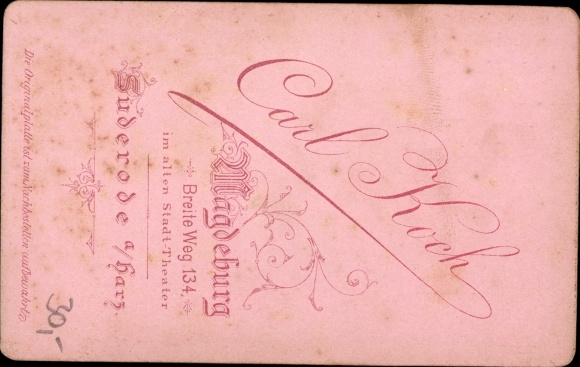 Carl Koch
Magdeburg
Breite Weg 134.
im alten Stadt-Theater
Süderode a/Harz.
Die Originalplatte ist zum Nachbestellen aufbewahrt.
30,-